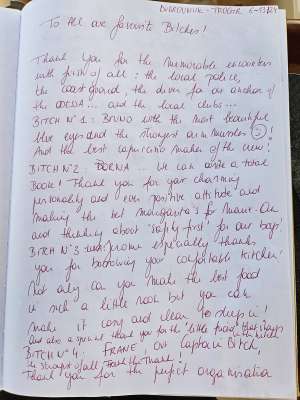 DUBROVNIK - TROGIR
To All our favourite Bitches!
Thank you for the memorable encounters
with first of all: the local police,
the coast guard, the diver for our anchor of
the ODESA... and the local clubs...
BITCH N°1: BRUNO with the most beautiful
blue eyes and the strongest arm muscles
And the best capirinia maker of the crew!
BITCH N°2: BORNA ... We can write a total
Book! Thank you for your charming
personality and ever positive attitude and
making the best margarita's for
and thinking about 'safety first' for our bags!
BITCH N°3: especially thanks
you for borrowing your comfortable kitchen!
Not only can you make the best food
in such a little nook but you can
make it cosy and clean to sleep in!
and also a special thank you for the 'little friend' that
BITCH N°4: FRANE, our Captain Bitch,
the strongest of all,
Thank you for the perfect organisation